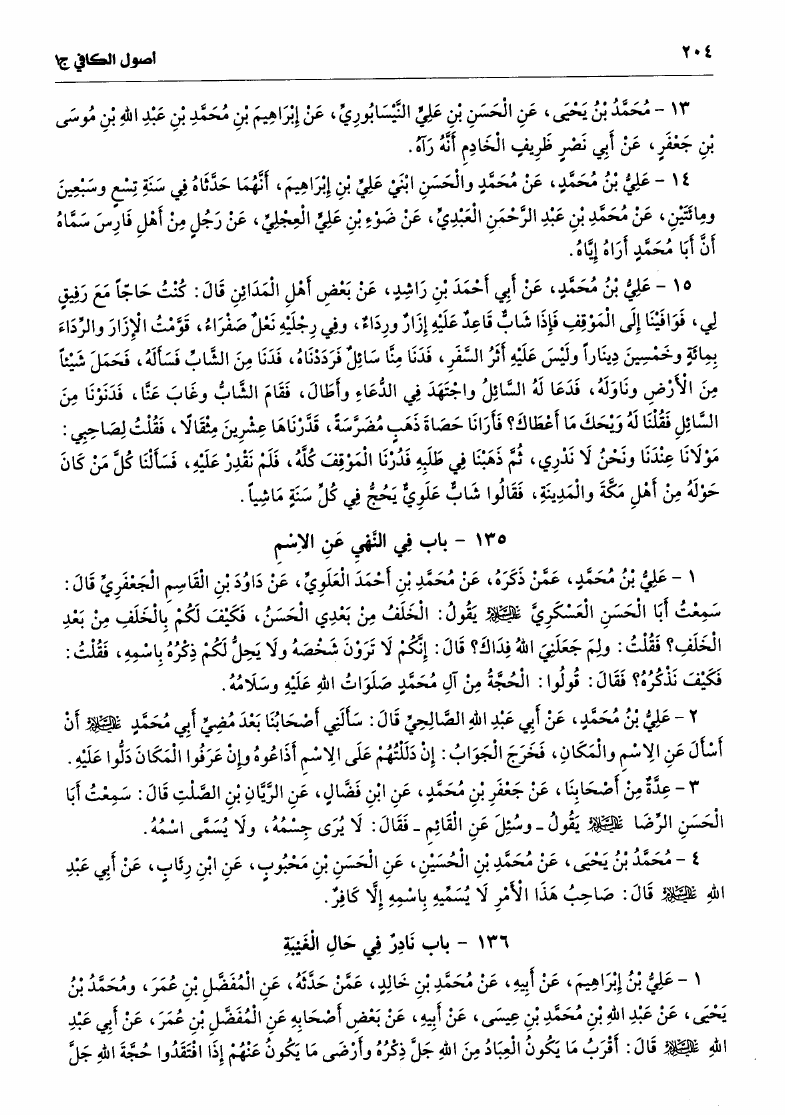 ٢٠٤
أصول الكافي ج١
١٣ - مُحَمَّدُ بْنُ يَحْيَى، عَنِ الْحَسَنِ بْنِ عَلِيٍّ النَّيْسَابُورِيِّ، عَنْ إِبْرَاهِيمَ بْنِ مُحَمَّدِ بْنِ عَبْدِ اللهِ بْنِ مُوسَى
بْنِ جَعْفَرٍ، عَنْ أَبِي نَصْرٍ ظَرِيفٍ الْخَادِمِ أَنَّهُ رَآهُ.
١٤ - عَلِيُّ بْنُ مُحَمَّدٍ، عَنْ مُحَمَّدٍ والْحَسَنِ ابْنَيْ عَلِيِّ بْنِ إِبْرَاهِيمَ، أَنَّهُمَا حَدَّثَاهُ فِي سَنَةِ تِسْعٍ وسَبْعِينَ
ومِائَتَيْنِ، عَنْ مُحَمَّدِ بْنِ عَبْدِ الرَّحْمَنِ الْعَبْدِيِّ، عَنْ ضَوْءِ بْنِ عَلِيٍّ الْعِجْلِيِّ، عَنْ رَجُلٍ مِنْ أَهْلِ فَارِسَ سَمَّاهُ
أَنَّ أَبَا مُحَمَّدٍ أَرَاهُ إِيَّاهُ.
١٥ - عَلِيُّ بْنُ مُحَمَّدٍ، عَنْ أَبِي أَحْمَدَ بْنِ رَاشِدٍ، عَنْ بَعْضِ أَهْلِ الْمَدَائِنِ قَالَ: كُنْتُ حَاجّاً مَعَ رَفِيقٍ
لِي، فَوَافَيْنَا إِلَى الْمَوْقِفِ فَإِذَا شَابٌّ قَاعِدٌ عَلَيْهِ إِزَارٌ ورِدَاءٌ، وفِي رِجْلَيْهِ نَعْلٌ صَفْرَاءُ، قَوَّمْتُ الْإِزَارَ والرِّدَاءَ
بِمِائَةٍ وخَمْسِينَ دِينَاراً ولَيْسَ عَلَيْهِ أَثَرُ السَّفَرِ، فَدَنَا مِنَّا سَائِلٌ فَرَدَدْنَاهُ، فَدَنَا مِنَ الشَّابِّ فَسَأَلَهُ، فَحَمَلَ شَيْئاً
مِنَ الْأَرْضِ ونَاوَلَهُ، فَدَعَا لَهُ السَّائِلُ واجْتَهَدَ فِي الدُّعَاءِ وأَطَالَ، فَقَامَ الشَّابُّ وغَابَ عَنَّا، فَدَنَوْنَا مِنَ
السَّائِلِ فَقُلْنَا لَهُ وَيْحَكَ مَا أَعْطَاكَ؟ فَأَرَانَا حَصَاةَ ذَهَبٍ مُضَرَّسَةً، قَدَّرْنَاهَا عِشْرِينَ مِثْقَالًا، فَقُلْتُ لِصَاحِبِي:
مَوْلَانَا عِنْدَنَا ونَحْنُ لَا نَدْرِي، ثُمَّ ذَهَبْنَا فِي طَلَبِهِ فَدُرْنَا الْمَوْقِفَ كُلَّهُ، فَلَمْ نَقْدِرْ عَلَيْهِ، فَسَأَلْنَا كُلَّ مَنْ كَانَ
حَوْلَهُ مِنْ أَهْلِ مَكَّةَ والْمَدِينَةِ، فَقَالُوا شَابٌّ عَلَوِيٌّ يَحُجُّ فِي كُلِّ سَنَةٍ مَاشِياً.
١٣٥ - باب فِي النَّهْيِ عَنِ الاِسْمِ
١ - عَلِيُّ بْنُ مُحَمَّدٍ، عَمَّنْ ذَكَرَهُ، عَنْ مُحَمَّدِ بْنِ أَحْمَدَ الْعَلَوِيِّ، عَنْ دَاوُدَ بْنِ الْقَاسِمِ الْجَعْفَرِيِّ قَالَ:
سَمِعْتُ أَبَا الْحَسَنِ الْعَسْكَرِيَّ عَلَيْهِ السَّلَامُ يَقُولُ: الْخَلَفُ مِنْ بَعْدِي الْحَسَنُ، فَكَيْفَ لَكُمْ بِالْخَلَفِ مِنْ بَعْدِ
الْخَلَفِ؟ فَقُلْتُ: ولِمَ جَعَلَنِيَ اللهُ فِدَاكَ؟ قَالَ: إِنَّكُمْ لَا تَرَوْنَ شَخْصَهُ ولَا يَحِلُّ لَكُمْ ذِكْرُهُ بِاسْمِهِ، فَقُلْتُ:
فَكَيْفَ نَذْكُرُهُ؟ فَقَالَ: قُولُوا: الْحُجَّةُ مِنْ آلِ مُحَمَّدٍ صَلَوَاتُ اللهِ عَلَيْهِ وسَلَامُهُ.
٢ - عَلِيُّ بْنُ مُحَمَّدٍ، عَنْ أَبِي عَبْدِ اللهِ الصَّالِحِيِّ قَالَ: سَأَلَنِي أَصْحَابُنَا بَعْدَ مُضِيِّ أَبِي مُحَمَّدٍ عَلَيْهِ السَّلَامُ أَنْ
أَسْأَلَ عَنِ الِاسْمِ والْمَكَانِ، فَخَرَجَ الْجَوَابُ: إِنْ دَلَلْتُهُمْ عَلَى الِاسْمِ أَذَاعُوهُ وإِنْ عَرَفُوا الْمَكَانَ دَلُّوا عَلَيْهِ.
٣ - عِدَّةٌ مِنْ أَصْحَابِنَا، عَنْ جَعْفَرِ بْنِ مُحَمَّدٍ، عَنِ ابْنِ فَضَّالٍ، عَنِ الرَّيَّانِ بْنِ الصَّلْتِ قَالَ: سَمِعْتُ أَبَا
الْحَسَنِ الرِّضَا عَلَيْهِ السَّلَامُ يَقُولُ ـ وسُئِلَ عَنِ الْقَائِمِ ـ فَقَالَ: لَا يُرَى جِسْمُهُ، ولَا يُسَمَّى اسْمُهُ.
٤ - مُحَمَّدُ بْنُ يَحْيَى، عَنْ مُحَمَّدِ بْنِ الْحُسَيْنِ، عَنِ الْحَسَنِ بْنِ مَحْبُوبٍ، عَنِ ابْنِ رِئَابٍ، عَنْ أَبِي عَبْدِ
اللهِ عَلَيْهِ السَّلَامُ قَالَ: صَاحِبُ هَذَا الْأَمْرِ لَا يُسَمِّيهِ بِاسْمِهِ إِلَّا كَافِرٌ.
١٣٦ - باب نَادِرٌ فِي حَالِ الْغَيْبَةِ
١ - عَلِيُّ بْنُ إِبْرَاهِيمَ، عَنْ أَبِيهِ، عَنْ مُحَمَّدِ بْنِ خَالِدٍ، عَمَّنْ حَدَّثَهُ، عَنِ الْمُفَضَّلِ بْنِ عُمَرَ، ومُحَمَّدُ بْنُ
يَحْيَى، عَنْ عَبْدِ اللهِ بْنِ مُحَمَّدِ بْنِ عِيسَى، عَنْ أَبِيهِ، عَنْ بَعْضِ أَصْحَابِهِ عَنِ الْمُفَضَّلِ بْنِ عُمَرَ، عَنْ أَبِي عَبْدِ
اللهِ عَلَيْهِ السَّلَامُ قَالَ: أَقْرَبُ مَا يَكُونُ الْعِبَادُ مِنَ اللهِ جَلَّ ذِكْرُهُ وأَرْضَى مَا يَكُونُ عَنْهُمْ إِذَا افْتَقَدُوا حُجَّةَ اللهِ جَلَّ